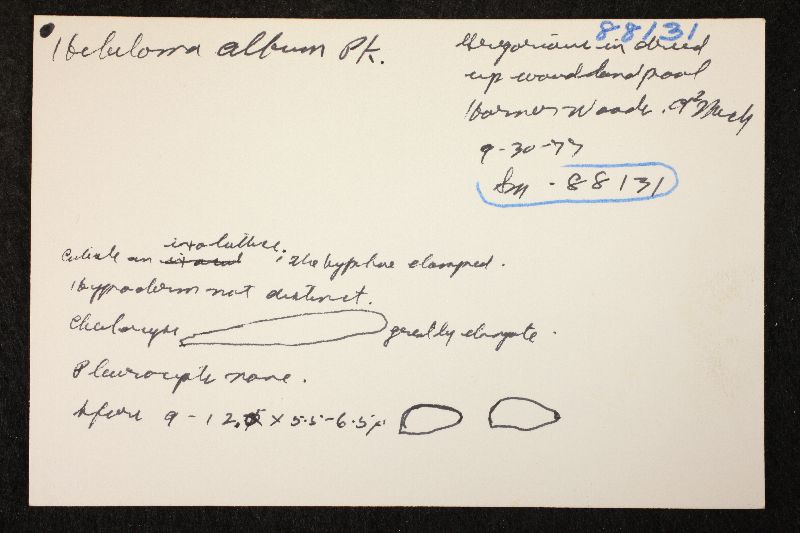 88131
Hebeloma album Pk.
Gregarious in dried
up woodland pool
Harmer Woods. A² Mich
9-30-77
Sm - 88131
Cuticle an ixolattice, the hyphae clamped.
Hypoderm not distinct.
Cheilocyst greatly elongate.
Pleurocysts none.
Spores 9-12.5 x 5.5-6.5µ